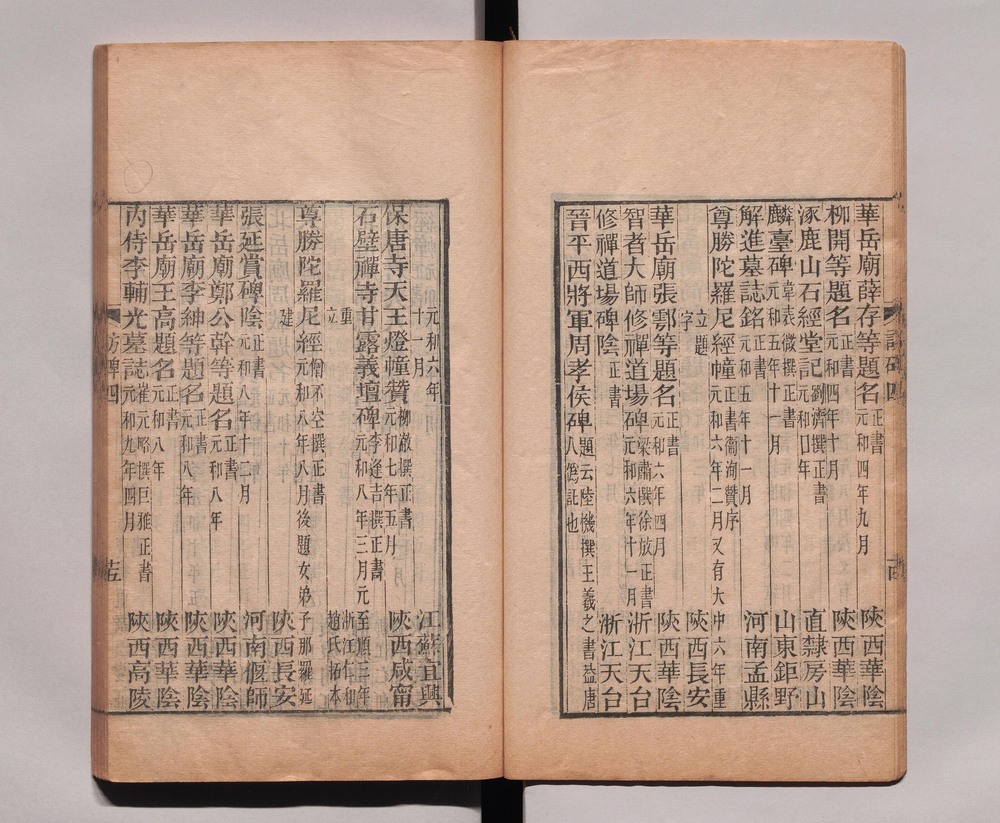 華岳廟薛存等題名正書元和四年九月 陝西華陰
柳開等題名正書元和四年十月 陝西華陰
涿鹿山石經堂記劉濟撰正書元和囗年 直隸房山
麟臺碑韋表微撰正書元和五年十一月 山東鉅野
解進墓誌銘正書元和五年十一月 河南孟縣
尊勝陀羅尼經幢正書衞洵贊序元和六年二月又有大中六年重
立題字 陝西長安
華岳廟張鄠等題名正書元和六年四月 陝西華陰
智者大師修禪道場碑梁肅撰徐放正書元和六年十一月 浙江天台
修禪道場碑陰正書 浙江天台
晉平西將軍周孝侯碑題云陸機撰王羲之書益唐人僞託也
元和六年十一月 江蘇宜興
保唐寺天王燈幢贊柳澈撰正書元和七年五月 陝西咸甯
石壁禪寺甘露義壇碑李逢吉撰正書元和八年三月元至順三年
重立 浙江仁和趙氏拓本
尊勝陀羅尼經僧不空撰正書元和八年八月後題女弟子那羅延
建 陝西長安
張延賞碑陰正書元和八年十二月 河南偃師
華岳廟鄭公幹等題名正書元和八年 陝西華陰
華岳廟李紳等題名正書元和八年 陝西華陰
華岳廟王高題名正書元和八年 陝西華陰
內侍李輔光墓誌崔元略撰巨雅正書元和九年四月 陝西高陵